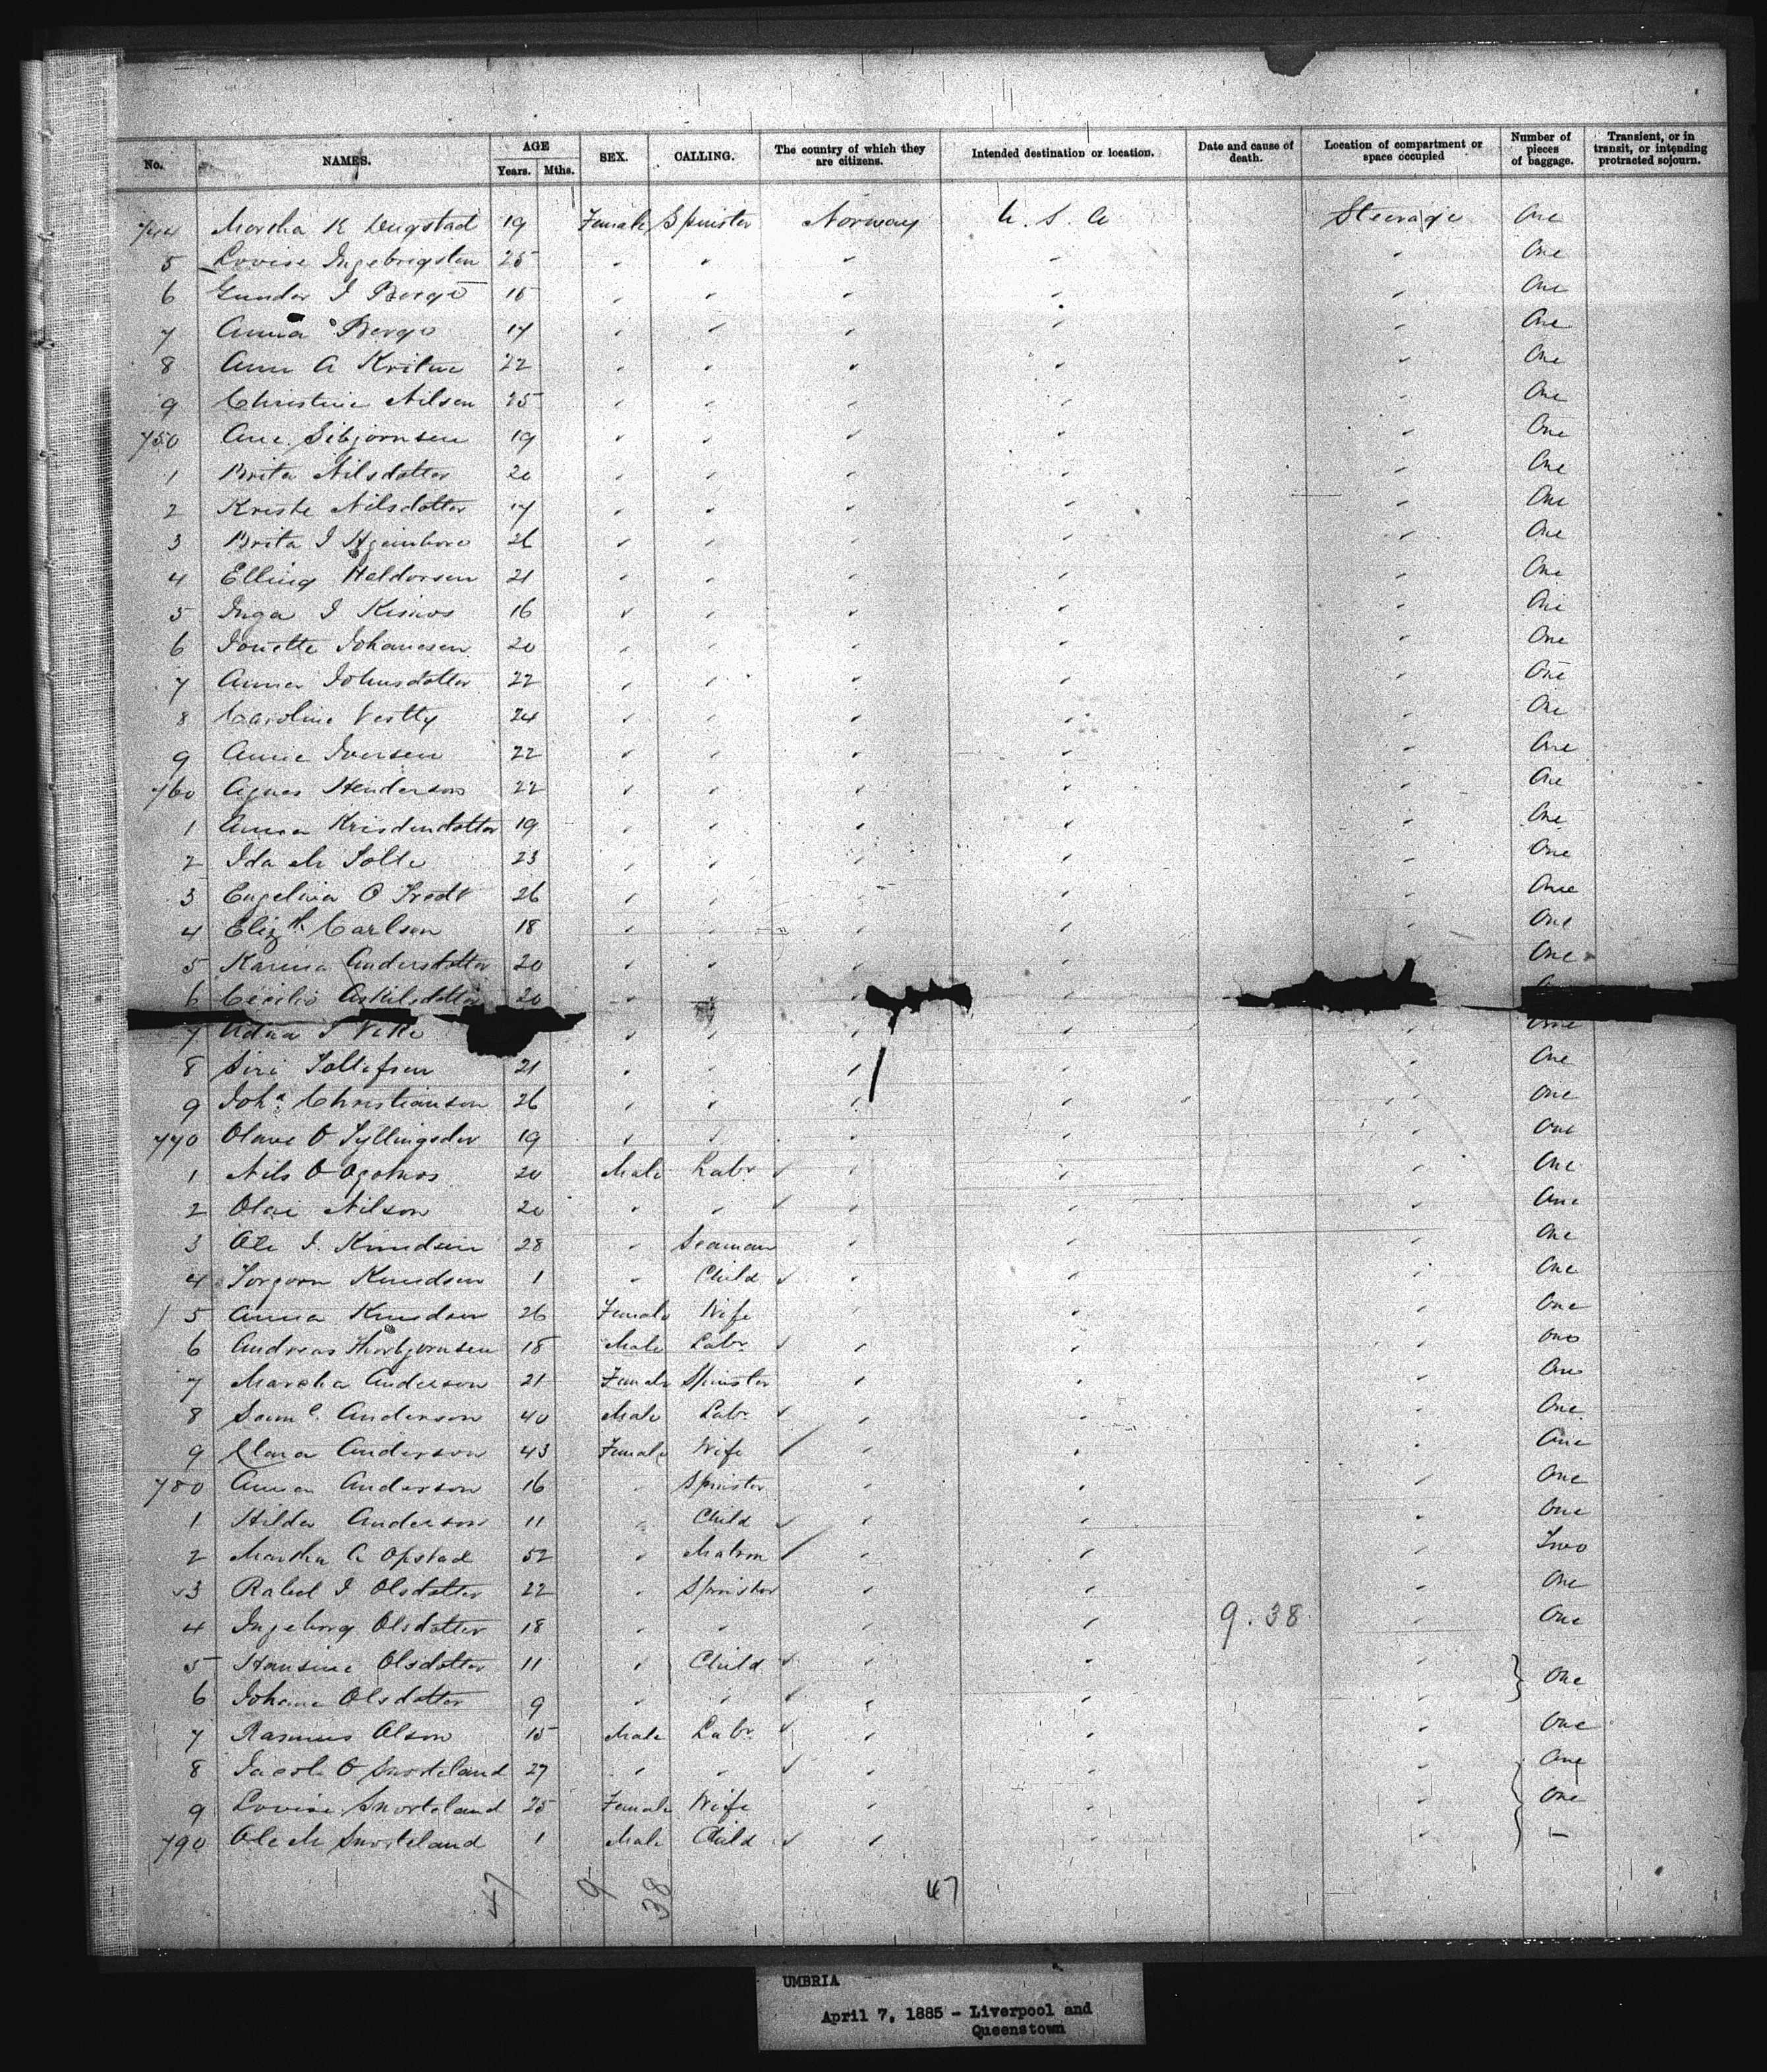 No. NAMES. AGE Years. Mths. SEX. CALLING. The country of which they are citizens. Intended destination or location. Date and cause of death. Location of compartment or space occupied Number of pieces of baggage. Transient, or in transit, or intending protracted sojourn.
744 Martha K 19 Female Spinster Norway U. S. A Steerage One
5 Lovise Ingebrigsten 25 " " " " " One
6 Gunder I Bergo " " " " " One
7 Anna Bergo 17 " " " " " One
8 Ann A 22 " " " " " One
9 Christine Nilsen 25 " " " " " One
750 Ane Sibjornsen 19 " " " " " One
1 Brita Nilsdatter 20 " " " " " One
2 Kriste Nilsdatter 17 " " " " " One
3 Brita I 26 " " " " " One
4 Elling Haldorsen 21 " " " " " One
5 Inga I 16 " " " " " One
6 Jonette Johanesen 20 " " " " " One
7 Anna Johnsdatter 22 " " " " " One
8 Caroline Vestly 24 " " " " " One
9 Anne Iversen 22 " " " " " One
760 Agnes Henderson 22 " " " " " One
1 Anna 19 " " " " " One
2 Ida M 23 " " " " " One
3 Engelina O 26 " " " " " One
4 Elizth Carlson 18 " " " " " One
5 Karina Andersdatter 20 " " " " " One
6 Cecilie Askilsdatter 20 " " " "
7 " " " " " One
8 Siri Tollefsen 21 " " " " " One
9 Joha Christianson 26 " " " " " One
770 Olave O 19 " " " " " One
1 Nils O 20 Male Labr " " " One
2 Olai Nilson 20 " " " " " One
3 Ole I. Knudsen 28 " Seaman " " " One
4 Torgorn Knudsen 1 " Child " " " One
5 Anna Knudsen 26 Female Wife " " " One
6 Andreas Thorbjornsen 18 Male Labr " " " One
7 Martha Anderson 21 Female Spinster " " " One
8 Saml Anderson 40 Male Labr " " " One
9 Clara Anderson 43 Female Wife " " " One
780 Anna Anderson 16 " Spinster " " " One
1 Hilda Anderson 11 " Child " " " One
2 Martha A Opstad 52 " Matron " " " Two
3 Rakel I Olsdatter 22 " Spinster " " " One
4 Ingeborg Olsdatter 18 " " " " 9.38 " One
5 Hansine Olsdatter 11 " Child " " " One
6 Johane Olsdatter 9 " " " " "
7 Rasmus Olson 15 Male Labr " " " One
8 Jacob O Snorteland 27 " " " " " One
9 Lovise Snorteland 25 Female Wife " " " One
790 Ole M Snorteland 1 Male Child " " " —
47 9 38 47
UMBRIA
April 7, 1885 - Liverpool and
Queenstown